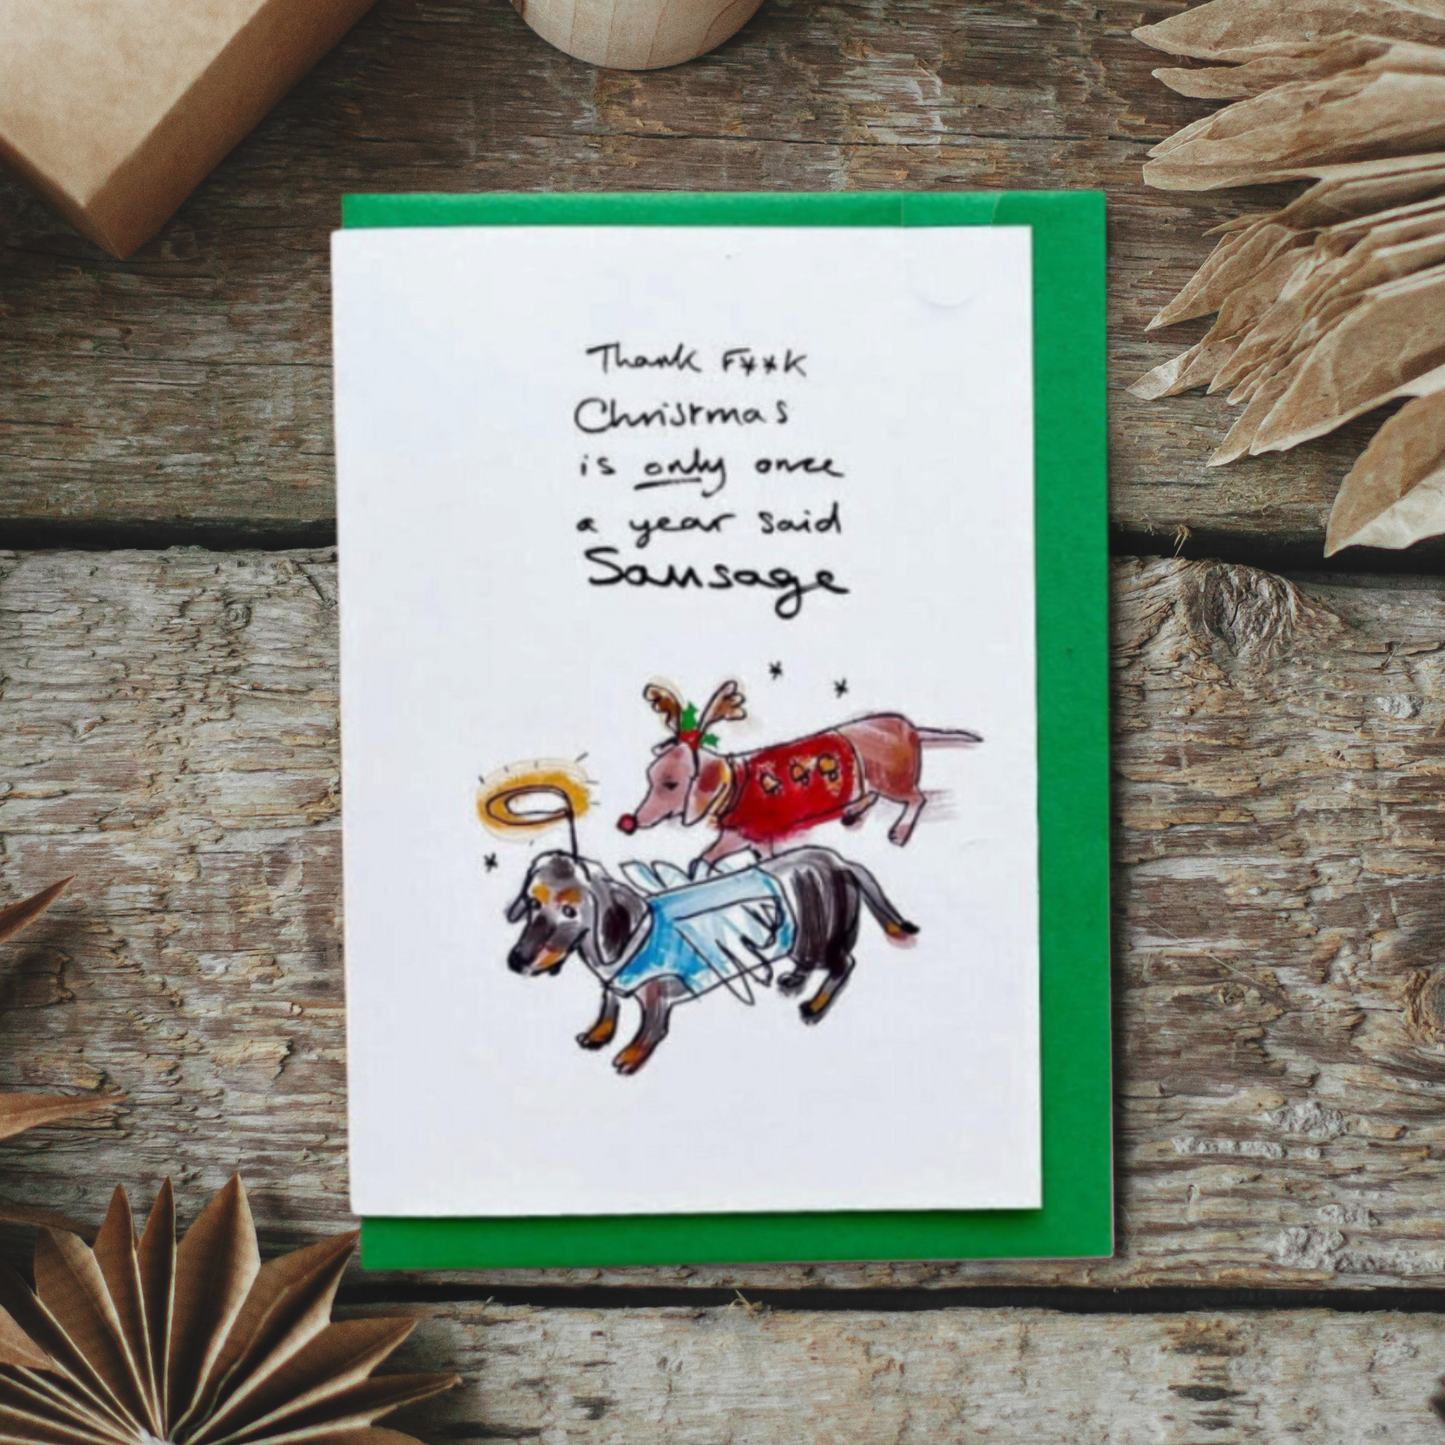 Thank F**K
Christmas
is only once
a year said
Sausage